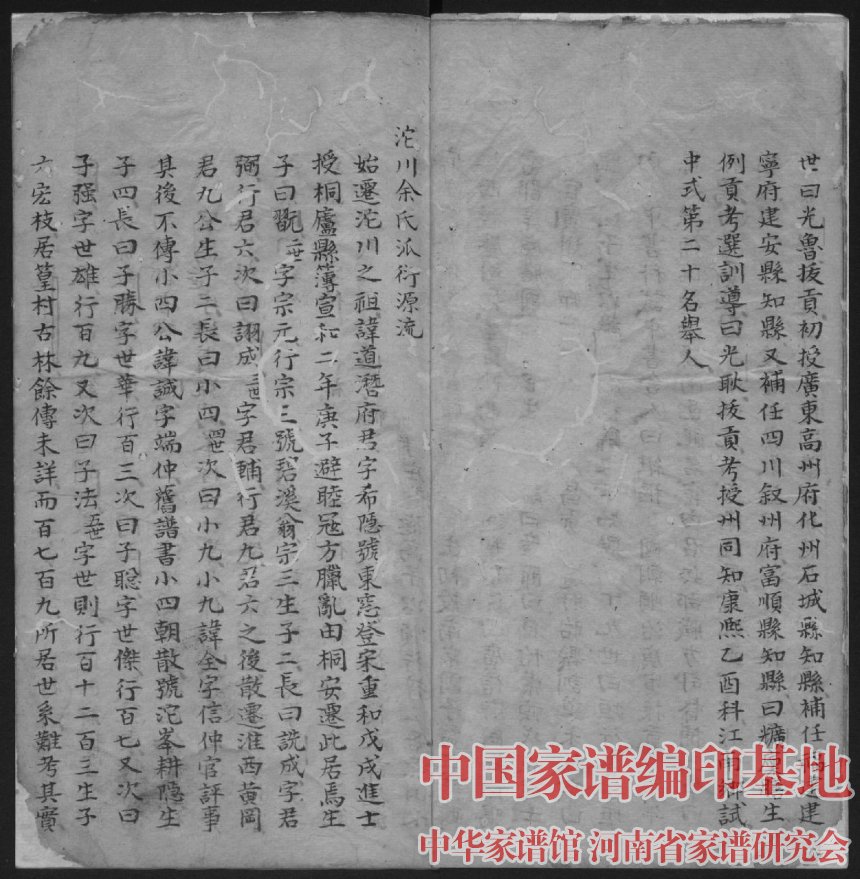 世曰光魯拔貢初授廣東高州府化州石城縣知縣補任建
寧府建安縣知縣又補任四川叙州府富順縣知縣曰生
例貢考選訓導曰光耿拔貢考授州同知康熙乙酉科江試
中式第二十名舉人
沱川余氏派衍源流
始遷沱川之祖諱道潛府君字希隱號東窓登宋重和戊戌進士
授桐廬縣簿宣和二年庚子避睦冦方臘亂由桐安遷此居焉生
子曰翫二世字宗元行宗三號碧溪翁宗三生子二長曰詵成字君
弼行君六次曰詡成三世字君輔行君九君六之後散遷淮西黄岡
君九公生子二長曰小四四世次曰小九小九諱全字信仲官評事
其後不傳小四公諱誠字端仲舊譜書小四朝散號沱峯耕隐生
子四長曰子勝字世華行百三次曰子聡字世傑行百七又次曰
子强字世雄行百九又次曰子法五世字世則行百十二百三生子
六宏枝居篁村古林餘傳未詳而百七百九所居世系難考其實
中国家谱编印基地
中华家谱馆 河南省家谱研究会